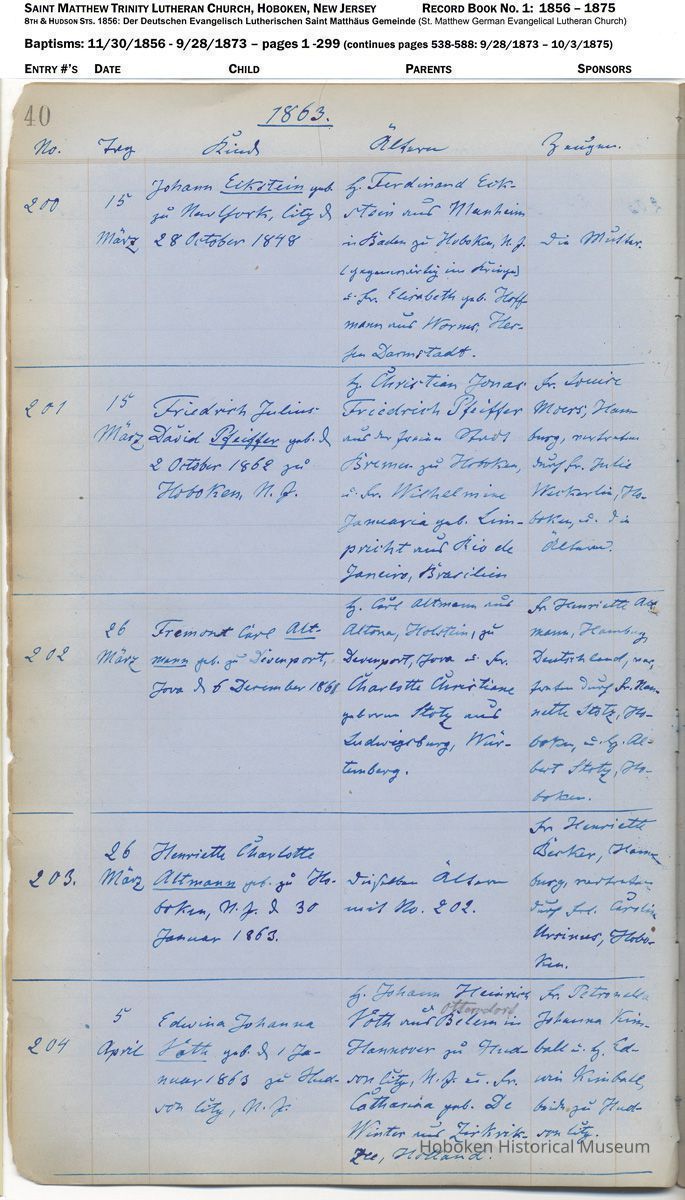 SAINT MATTHEW TRINITY LUTHERAN CHURCH, HOBOKEN, NEW JERSEY RECORD BOOK NO. 1: 1856 – 1875
8TH & HUDSON STS. 1856: Der Deutschen Evangelisch Lutherischen Saint Matthäus Gemeinde (St. Matthew German Evangelical Lutheran Church)
Baptisms: 11/30/1856 - 9/28/1873 – pages 1 -299 (continues pages 538-588: 9/28/1873 – 10/3/1875)
ENTRY #'S DATE CHILD PARENTS SPONSORS
40
1863.
No. Tag Kind Ältern Zeugen.
200
15
März
Johann Eckstein geb.
zu New York, City d.
28 October 1848
H. Ferdinand Eck-
stein aus Manheim
in Baden zu Hoboken, N. J.
(gegenwärtig im Kriege)
u. Fr. Elisabeth geb. Hoff
mann aus Worms, Hes-
sen Darmstadt.
Die Mutter.
201
15
März
Friedrich Julius
David Pfeiffer geb. d.
2 October 1862 zu
Hoboken, N. J.
H. Christian Jonas
Friedrich Pfeiffer
aus der freien Stadt
Bremen zu Hoboken,
u. Fr. Wilhelmine
Januaria geb. Lim-
pricht aus Rio de
Janeiro, Brasilien
Fr. Louise
Moers, Ham
burg, vertreten
durch Fr. Julie
Weckerlin, Ho-
boken, u. die
Ältern.
202
26
März
Fremont Carl Alt-
mann geb. zu Davenport,
Iova d. 6 December 1861
H. Carl Altmann aus
Altona, Holstein, zu
Davenport, Iova u. Fr.
Charlotte Christiane
geboren Stotz aus
Ludwigsburg, Wür-
temberg.
Fr. Henriette Alt
mann, Hamburg
Deutschland, ver-
treten durch Fr. Nan-
nette Stotz, Ho-
boken, u. H. Al-
bert Stotz, Ho-
boken.
203.
26
März
Henriette Charlotte
Altmann geb. zu Ho-
boken, N. J. d. 30
Januar 1863.
Dieselben Ältern
mit No. 202.
Fr. Henriette
Berker, Ham
burg, vertreten
durch Frl. Caroline
Ursinus, Hobo-
ken.
204
5
April
Edwina Johanna
Voth geb. d. 1 Ja-
nuar 1863 zu Hud-
son City, N. J.
H. Johann Heinrich
Otterndorf
Voth aus Belem in
Hannover zu Hud-
son City, N. J. u. Fr.
Catharina geb. De
Winter aus Zirkrik-
Zee, Holland.
Fr. Petronella
Johanna Kim-
ball u. H. Ed-
win Kimball,
beide zu Hud-
son City.
Hoboken Historical Museum